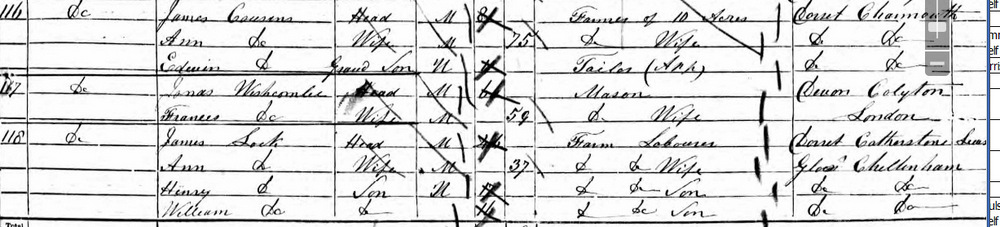 116 Do James Cousens Head M Farmer of 10 Acres Dorset Charmouth
Ann Do Wife M 75 Do Wife Do Do
Edwin Do Grand Son U Tailor (App) Do Do
117 Do Jonas Wishcombe Head M Mason Devon Colyton
Frances Do Wife M 59 Do Wife London
118 Do James Lock Head M Farm Labourer Dorset Catherstone
Ann Do Wife M 37 Do Do Wife Glos Cheltenham
Henry Do Son U Do Do Son Do Do
William Do Do Do Do Son Do Do
Total